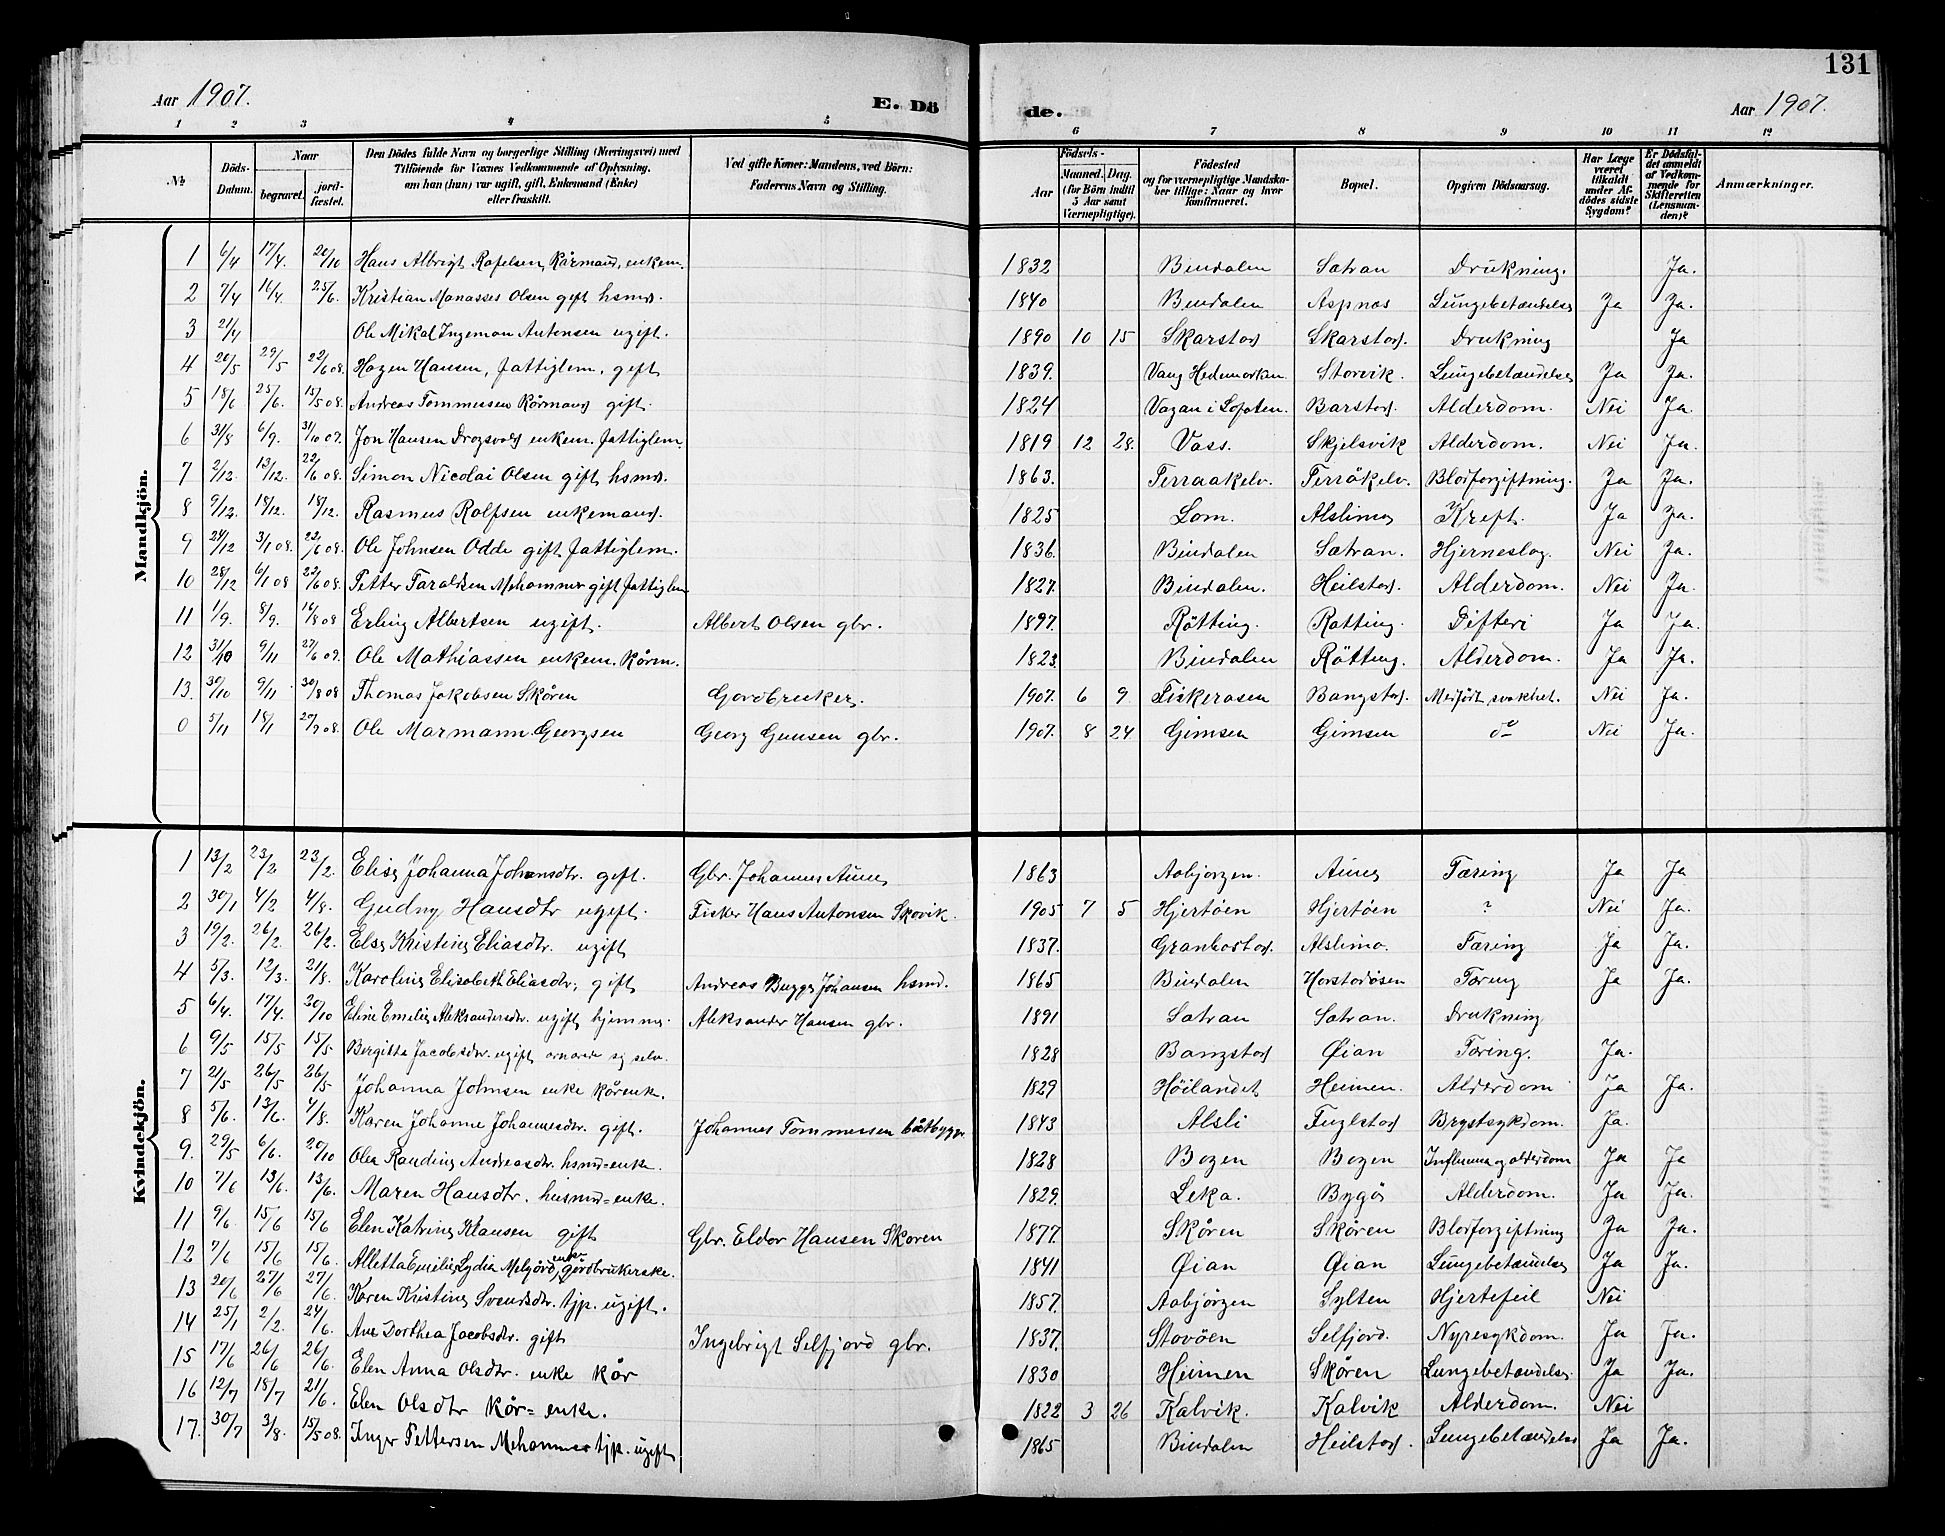 131
Aar 1907. E. Dö de. Aar 1907.
1 2 3 4 5 6 7 8 9 10 11 12
№ Döds-Datum. Naar begravet. jordfæstet. Den Dödes fulde Navn og borgerlige Stilling (Næringsvei) med Tilföiende for Voxnes Vedkommende af Oplysning, om han (hun) var ugift, gift, Enkemand (Enke) eller fraskilt. Ved gifte Koner: Mandens, ved Börn: Faderens Navn og Stilling. Födsels- Aar Maaned. Dag. (for Börn indtil 5 Aar samt Værnepligtige). Födested og for værnepligtige Mandskaber tillige: Naar og hvor konfirmeret. Bopæl. Opgiven Dödsaarsag. Har Læge været tilkaldt under Afdödes sidste Sygdom? Er Dödsfaldet anmeldt af Vedkommende for Skifteretten (Lensmanden)? Anmærkninger.
Mandkjön.
1 6/4 17/4. 20/10 Hans Albrigt Rafelsen, Kårmand, enkem. 1832 Bindalen Satran Drukning. Ja.
2 7/4 16/4. 25/6. Kristian Manasses Olsen gift hsmd. 1840 Bindalen Aspnes Lungebetændelse Ja Ja.
3 21/4 Ole Mikal Ingeman Antonsen ugift. 1890 10 15 Skarstad Skarstad. Drukning Ja
4 20/5 29/5 22/6 08. Hagen Hansen, fattiglem, gift 1839. Vang Hedemarken Storvik. Lungebetændelse Ja Ja.
5 18/6 25/6. 15/5 08. Andreas Tommesen Kårmand gift. 1824 Vagan i Lofoten. Barstad. Alderdom. Nei Ja.
6 31/8 6/9. 31/10 07. Jon Hansen Dragsvold enkem. fattiglem. 1819 12 28. Vass. Skjelsvik Alderdom. Nei Ja.
7 2/12. 13/12. 22/6 08. Simon Nicolai Olsen gift hsmd. 1863. Terraakelv. Terråkelv. Blodforgiftning. Ja Ja.
8 9/12. 18/12. 18/12. Rasmus Rolfsen enkemand. 1825 Lom. Alslimo Kreft. Ja Ja.
9 24/12 3/1 08. 22/6 08. Ole Johnsen Odde gift fattiglem. 1836. Bindalen Satran. Hjerneslag. Nei Ja.
10 28/12 6/1 08 22/6 08. Petter Taraldsen Mehammer gift fattiglem 1827. Bindalen. Heilstad. Alderdom. Nei Ja.
11 1/9. 8/9. 16/8 08 Erling Albertsen ugift. Albert Olsen gbr. 1897. Råtting. Ratting. Difteri Ja Ja.
12 31/10 9/11 27/6 09. Ole Mathiassen enkem. Kårm. 1823. Bindalen Råtting. Alderdom. Ja Ja.
13. 30/10 9/11 30/8 08 Thomas Jakobsen Skåren Gardbruker. 1907. 6 9 Fiskerosen Bangstad. Medfödt svakhet. Nei Ja.
0 5/11 18/1 27/7 08. Ole Marmann Georgsen Georg Gunsen gbr. 1907. 8 24 Gimsen Gimsen do Nei Ja.
Kvindekjön.
1 13/2 23/2 23/2. Elise Johanna Johansdtr. gift. Gbr. Johannes Aunes 1863 Aabjorgen. Aunes Tæring Ja Ja
2 30/1 4/2 4/8. Gudny Hansdtr ugift. Fisker Hans Antonsen Skovik. 1905 7 5 Hjertöen Hjertöen ? Nei Ja.
3 19/2. 26/2. 26/2. Else Kristine Eliasdtr. ugift 1837. Granbostad. Alslimo. Tæring Ja Ja.
4 5/3. 12/3. 21/8. Karoline Elisabeth Eliasdtr, gift Andreas Bugge Johansen hsmd. 1865 Bindalen Horstadåsen Tæring Ja Ja.
5 6/4. 17/4. 20/10 Eline Emelie Aleksandersdtr. ugift hjemme. Aleksander Hansen gbr. 1891 Satran Satran. Drukning
6 9/5 15/5 15/5. Bergitta Jacobsdtr. ugift ernærede sig selv. 1828 Bangstad Øian Tæring. Ja.
7 21/5 26/5 26/5 Johanna Johnsen enke Kårenke. 1829 Höilandet Heimen. Alderdom Ja Ja.
8 5/6. 13/6. 4/8. Karen Johanne Johannesdtr. gift. Johannes Tommessen båtbygg. 1843 Alsli Fuglstad Brystsykdom. Ja.
9. 29/5 6/6. 20/10 Olea Randine Andreasdtr. hsmd=enke. 1828 Bogen Bogen Influensa og alderdom Ja Ja
10 7/6 13/6. 13/6. Maren Hansdtr. husmd=enke. 1829. Leka. Bygå Alderdom. Ja Ja.
11 9/6. 15/6 15/6 Elen Katrine Klausen gift Gbr. Eldor Hansen Skåren 1877. Skåren Skåren Blodforgiftning Ja Ja.
12 7/6 15/6 15/6. Alletta Emilie Lydia Melgård, enke gårdbrukerske. 1841 Øian Øian Lungebetændelse Ja Ja.
13 20/6 27/6 27/6. Karen Kristine Svendsdtr. tjp. ugift. 1857. Aabjörgen Sylten Hjertefeil Nei
14 25/1 2/2. 24/6. Ane Dorthea Jacobsdtr. gift Ingebrigt Selfjord gbr. 1837. Stavöen Selfjord. Nyresykdom. Ja Ja.
15 17/6 26/6 26/6. Elen Anna Olsdtr. enke kår 1830 Heimen Skåren Lungebetændelse. Ja Ja.
16 12/7 18/7 21/6. Elen Olsdtr kår=enke. 1822 3 26 Kalvik. Kalvik Alderdom. Nei
17. 30/7 3/8. 15/5 08. Inger Pettersen Mehammer tjp. ugift 1865 Bindalen Heilstad. Lungebetændelse Ja Ja.